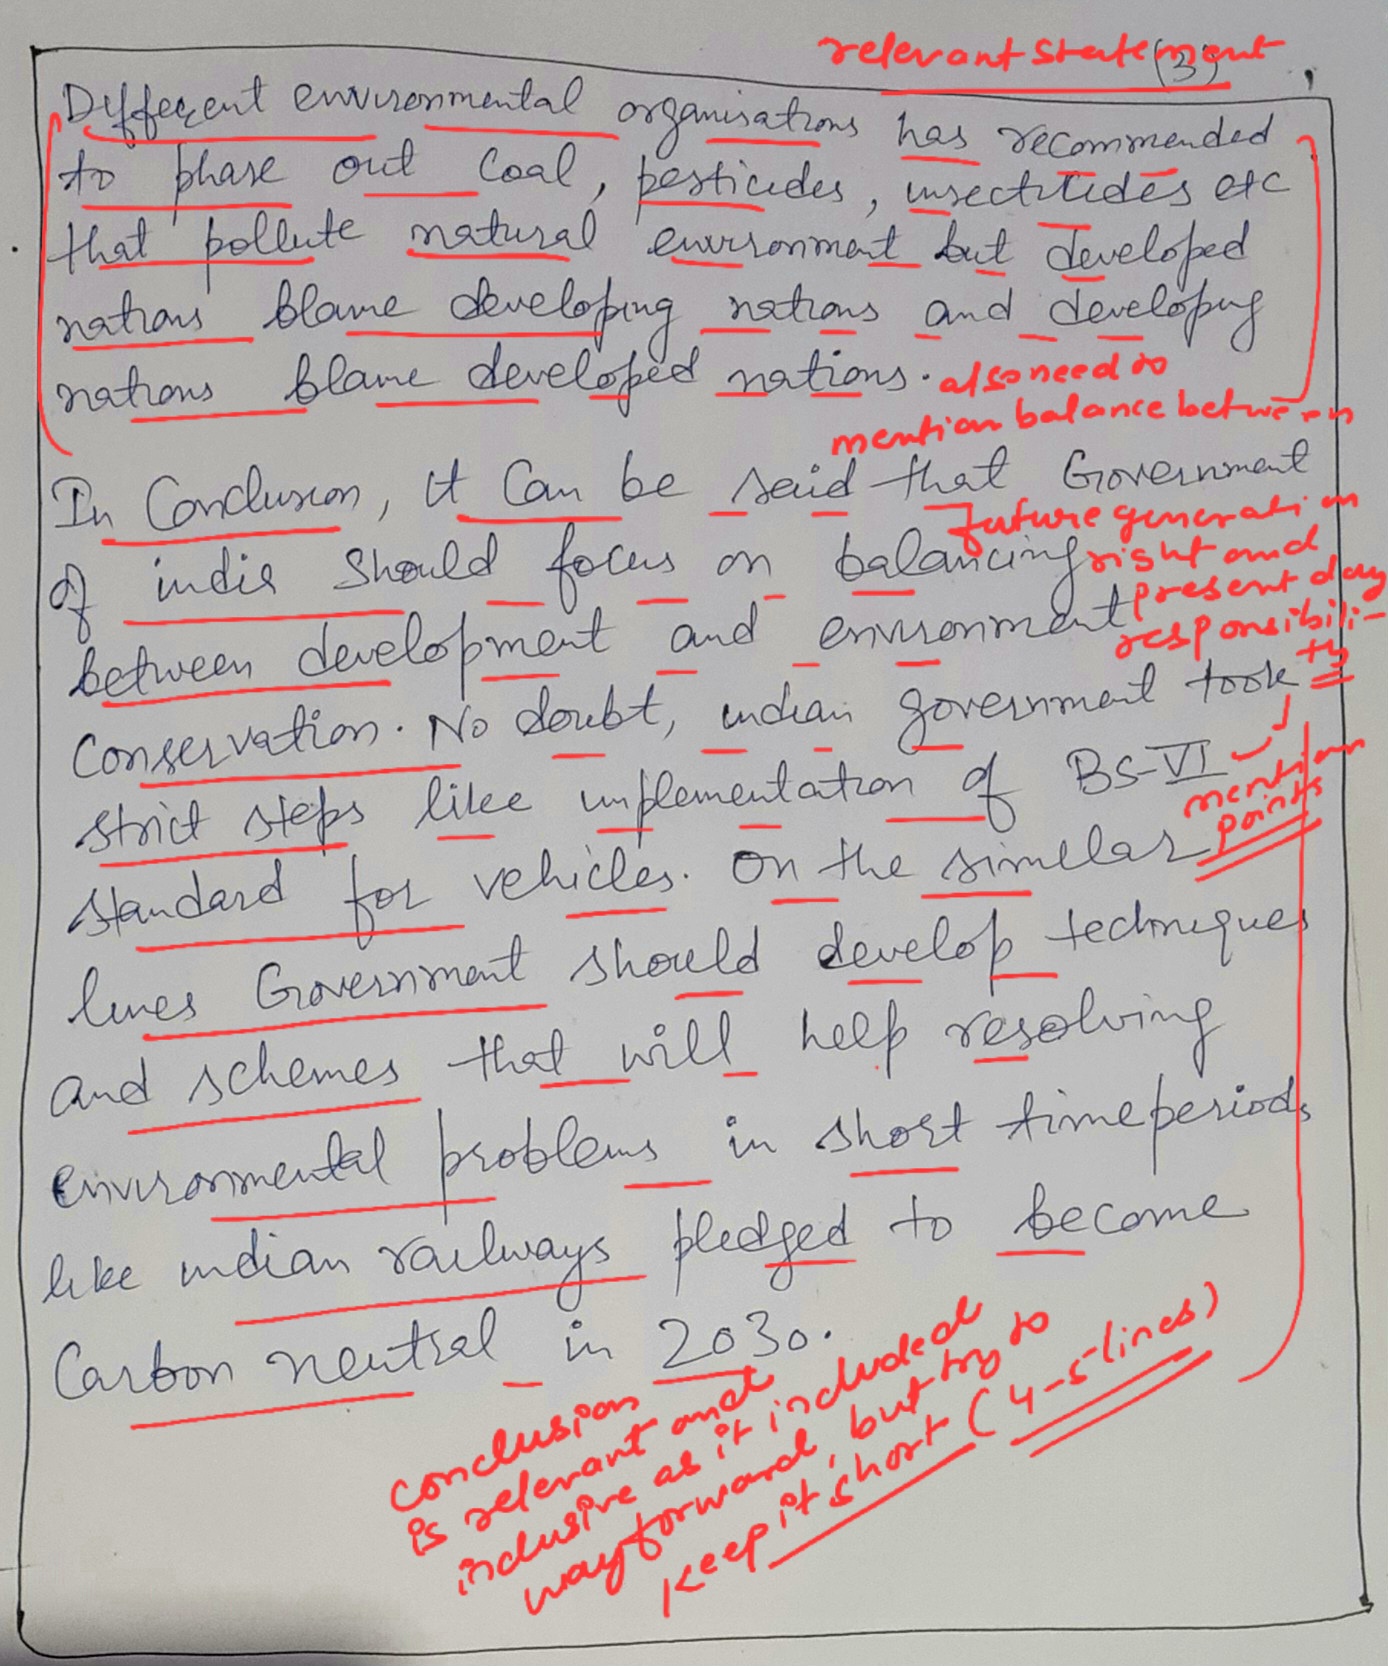 relevant statement
(3)
Different environmental organisations has recommended
to phase out coal, pesticides, insecticides etc
that pollute natural environment but developed
nations blame developing nations and developing
nations blame developed nations.
also need to
mention balance between
future generation
right and
present day
responsibili-
ty
mention
points
In Conclusion, it can be said that Government
of india should focus on balancing
between development and environment
conservation. No doubt, indian government took
strict steps like implementation of BS-VI
standard for vehicles. On the similar
lines Government should develop techniques
and schemes that will help resolving
environmental problems in short time periods
like indian railways pledged to become
Carbon neutral in 2030.
conclusion
is relevant and
inclusive as it included
way forward, but try to
keep it short (4-5 lines)